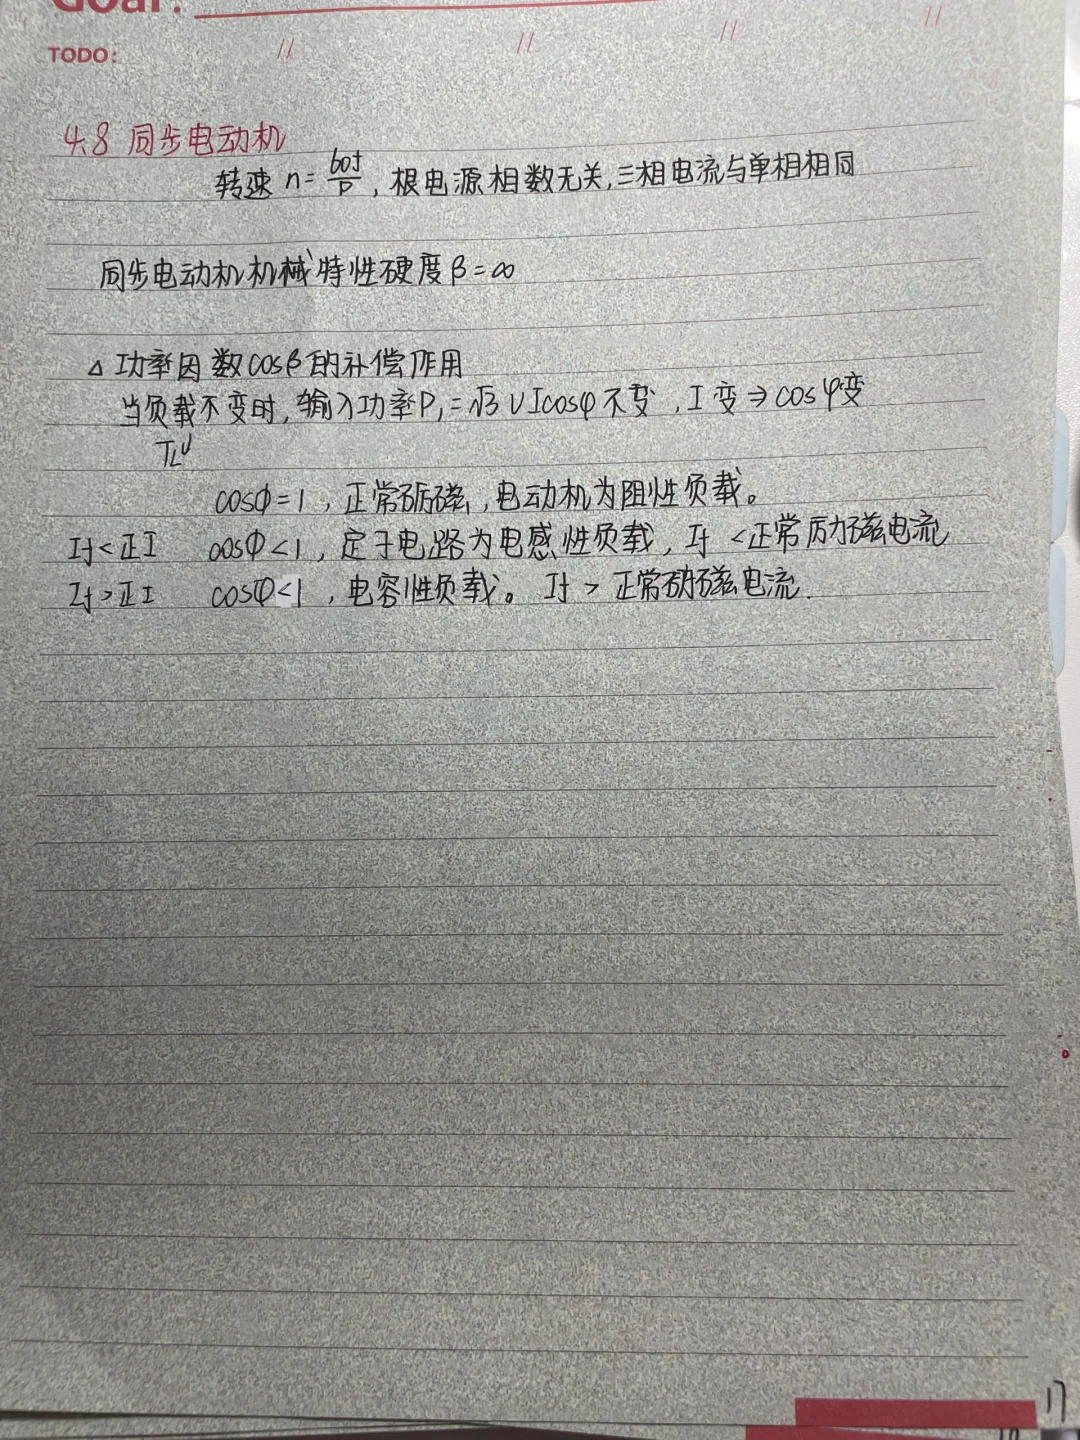 Goal:
TODO:
4.8 同步电动机
转速 n = 60f/P , 根电源相数无关, 三相电流与单相相同
同步电动机机械特性硬度 β = ∞
△ 功率因数cosβ的补偿作用
当负载不变时, 输入功率P₁ = √3 UIcosφ 不变 , I 变 ⇒ cosφ变
TL↓
cosφ = 1 , 正常励磁 , 电动机为阻性负载。
If < 正I cosφ < 1 , 定子电路为电感性负载 , If < 正常励磁电流
If > 正I cosφ < 1 , 电容性负载。 If > 正常励磁电流.
17